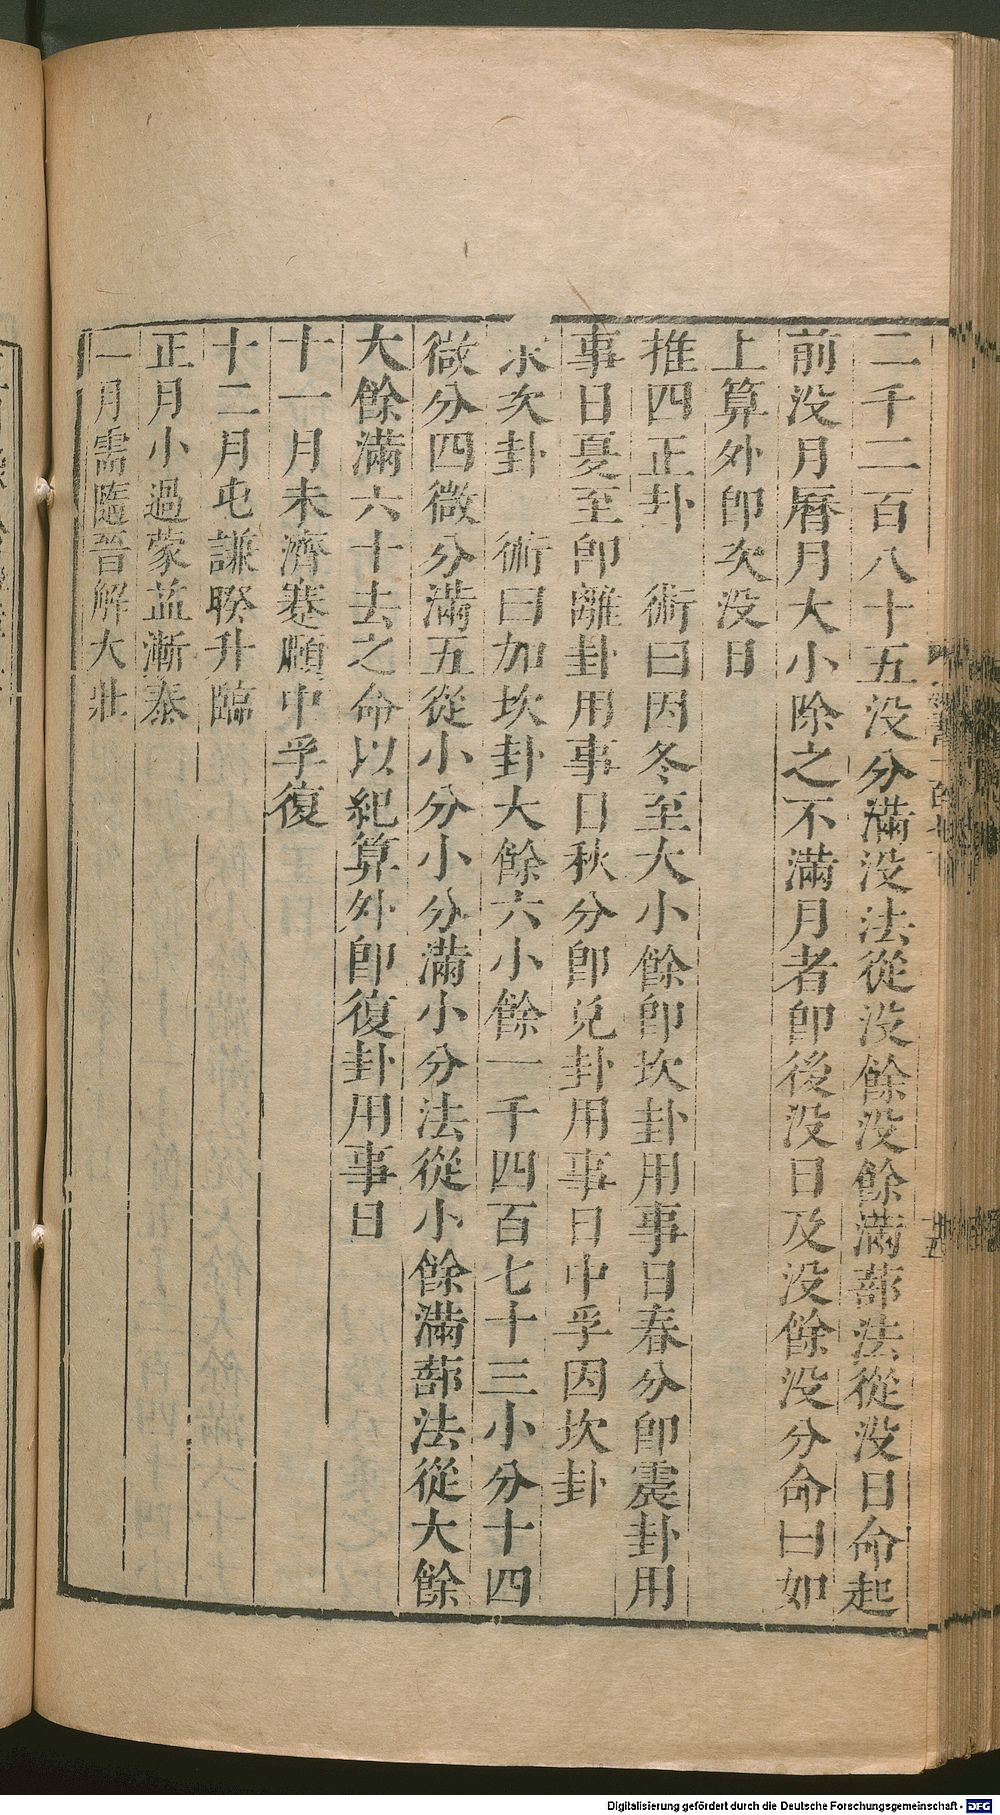 二千二百八十五没分滿没法從没餘没餘滿蔀法從没日命起
前没月曆月大小除之不滿月者卽後没日及没餘没分命曰如
上算外卽次没日
推四正卦　術曰因冬至大小餘卽坎卦用事日春分卽震卦用
事日夏至卽離卦用事日秋分卽兌卦用事日中孚因坎卦
求次卦　術曰加坎卦大餘六小餘一千四百七十三小分十四
微分四微分滿五從小分小分滿小分法從小餘滿蔀法從大餘
大餘滿六十去之命以紀算外卽復卦用事日
十一月未濟蹇頤中孚復
十二月屯謙睽升臨
正月小過蒙益漸泰
二月需隨晉解大壯
Digitalisierung gefördert durch die Deutsche Forschungsgemeinschaft - DFG